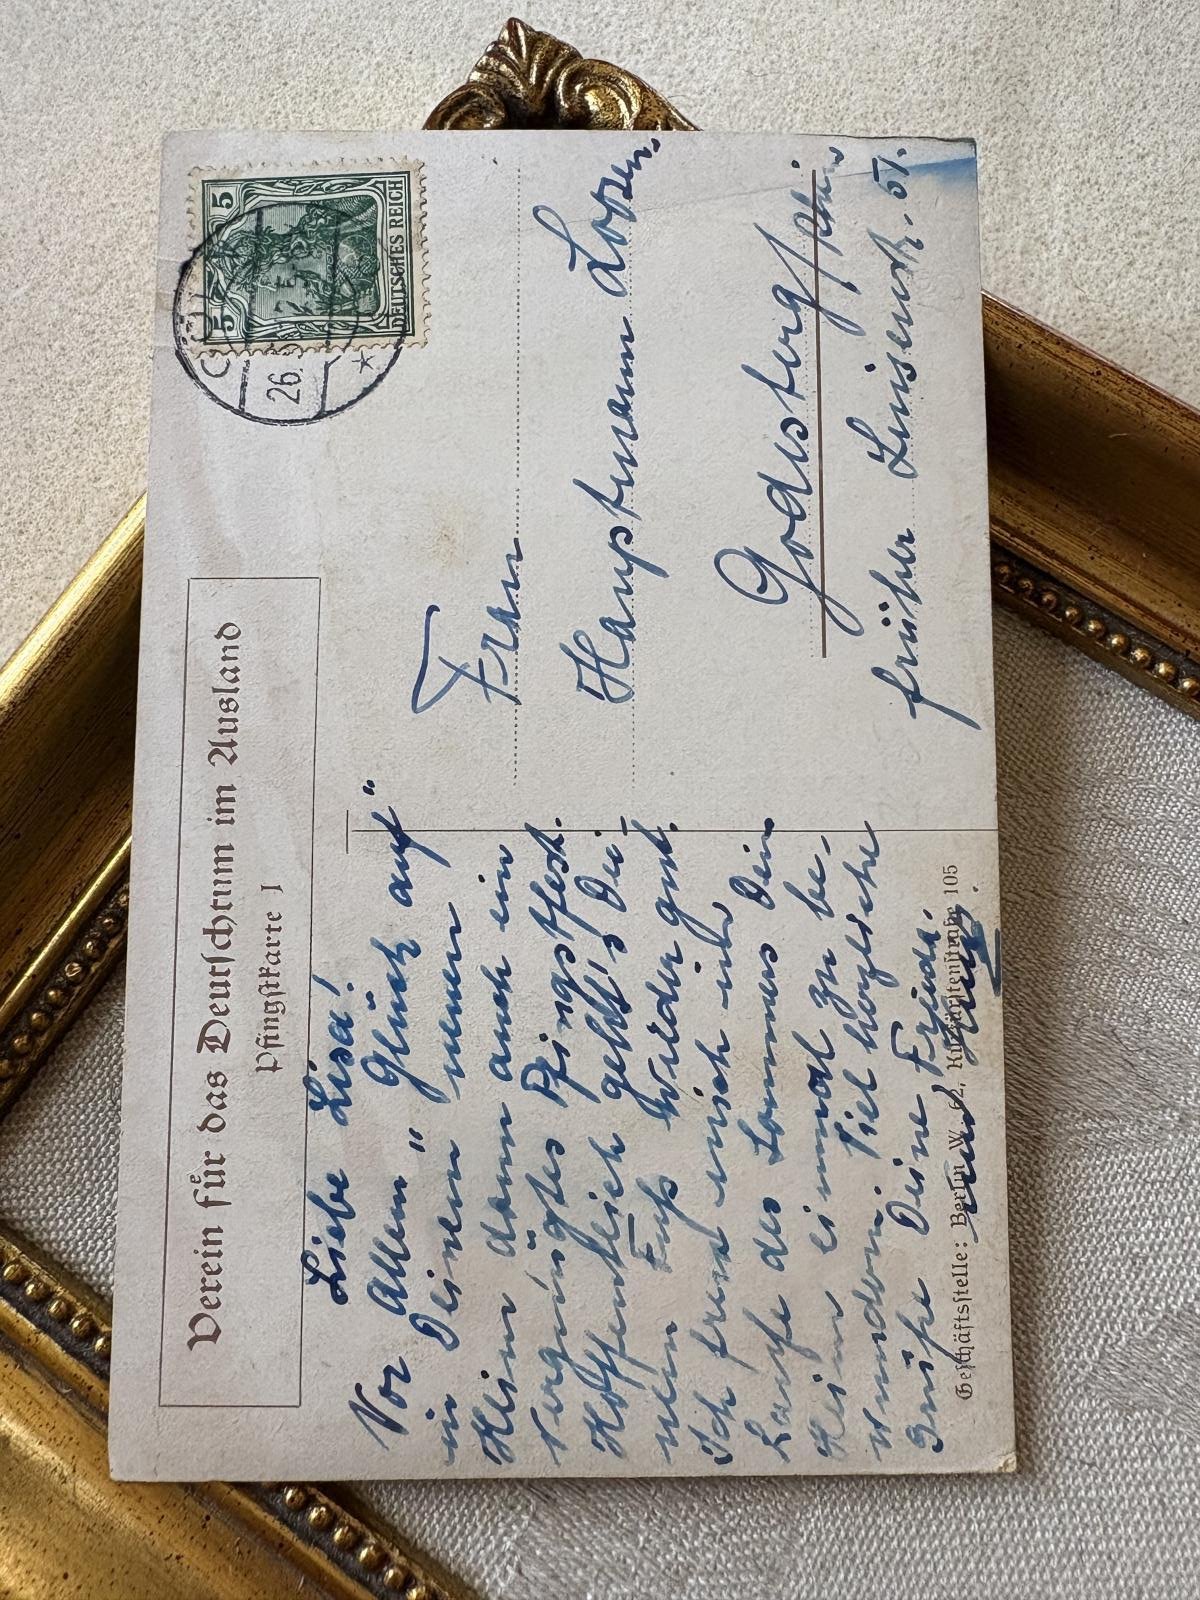 Verein für das Deutschtum im Ausland
Pfingstkarte I
Liebe Lisa!
Vor Allem "Glück auf"
in Deinem neuen
Heim dann auch ein
vergnügtes Pfingstfest.
Hoffentlich geht's Dei-
nem Fuß wieder gut.
Ich freue mich im
Laufe des Sommers Dein
Heim einmal zu be-
wundern. Viel herzliche
Grüße Deine Frieda.
Geschäftsstelle: Berlin W. 62, Kurfürstenstraße 105
5 5
DEUTSCHES REICH
26.5
Frau
Hauptmann
Godesberg/Rhein
früher Luisenstr.